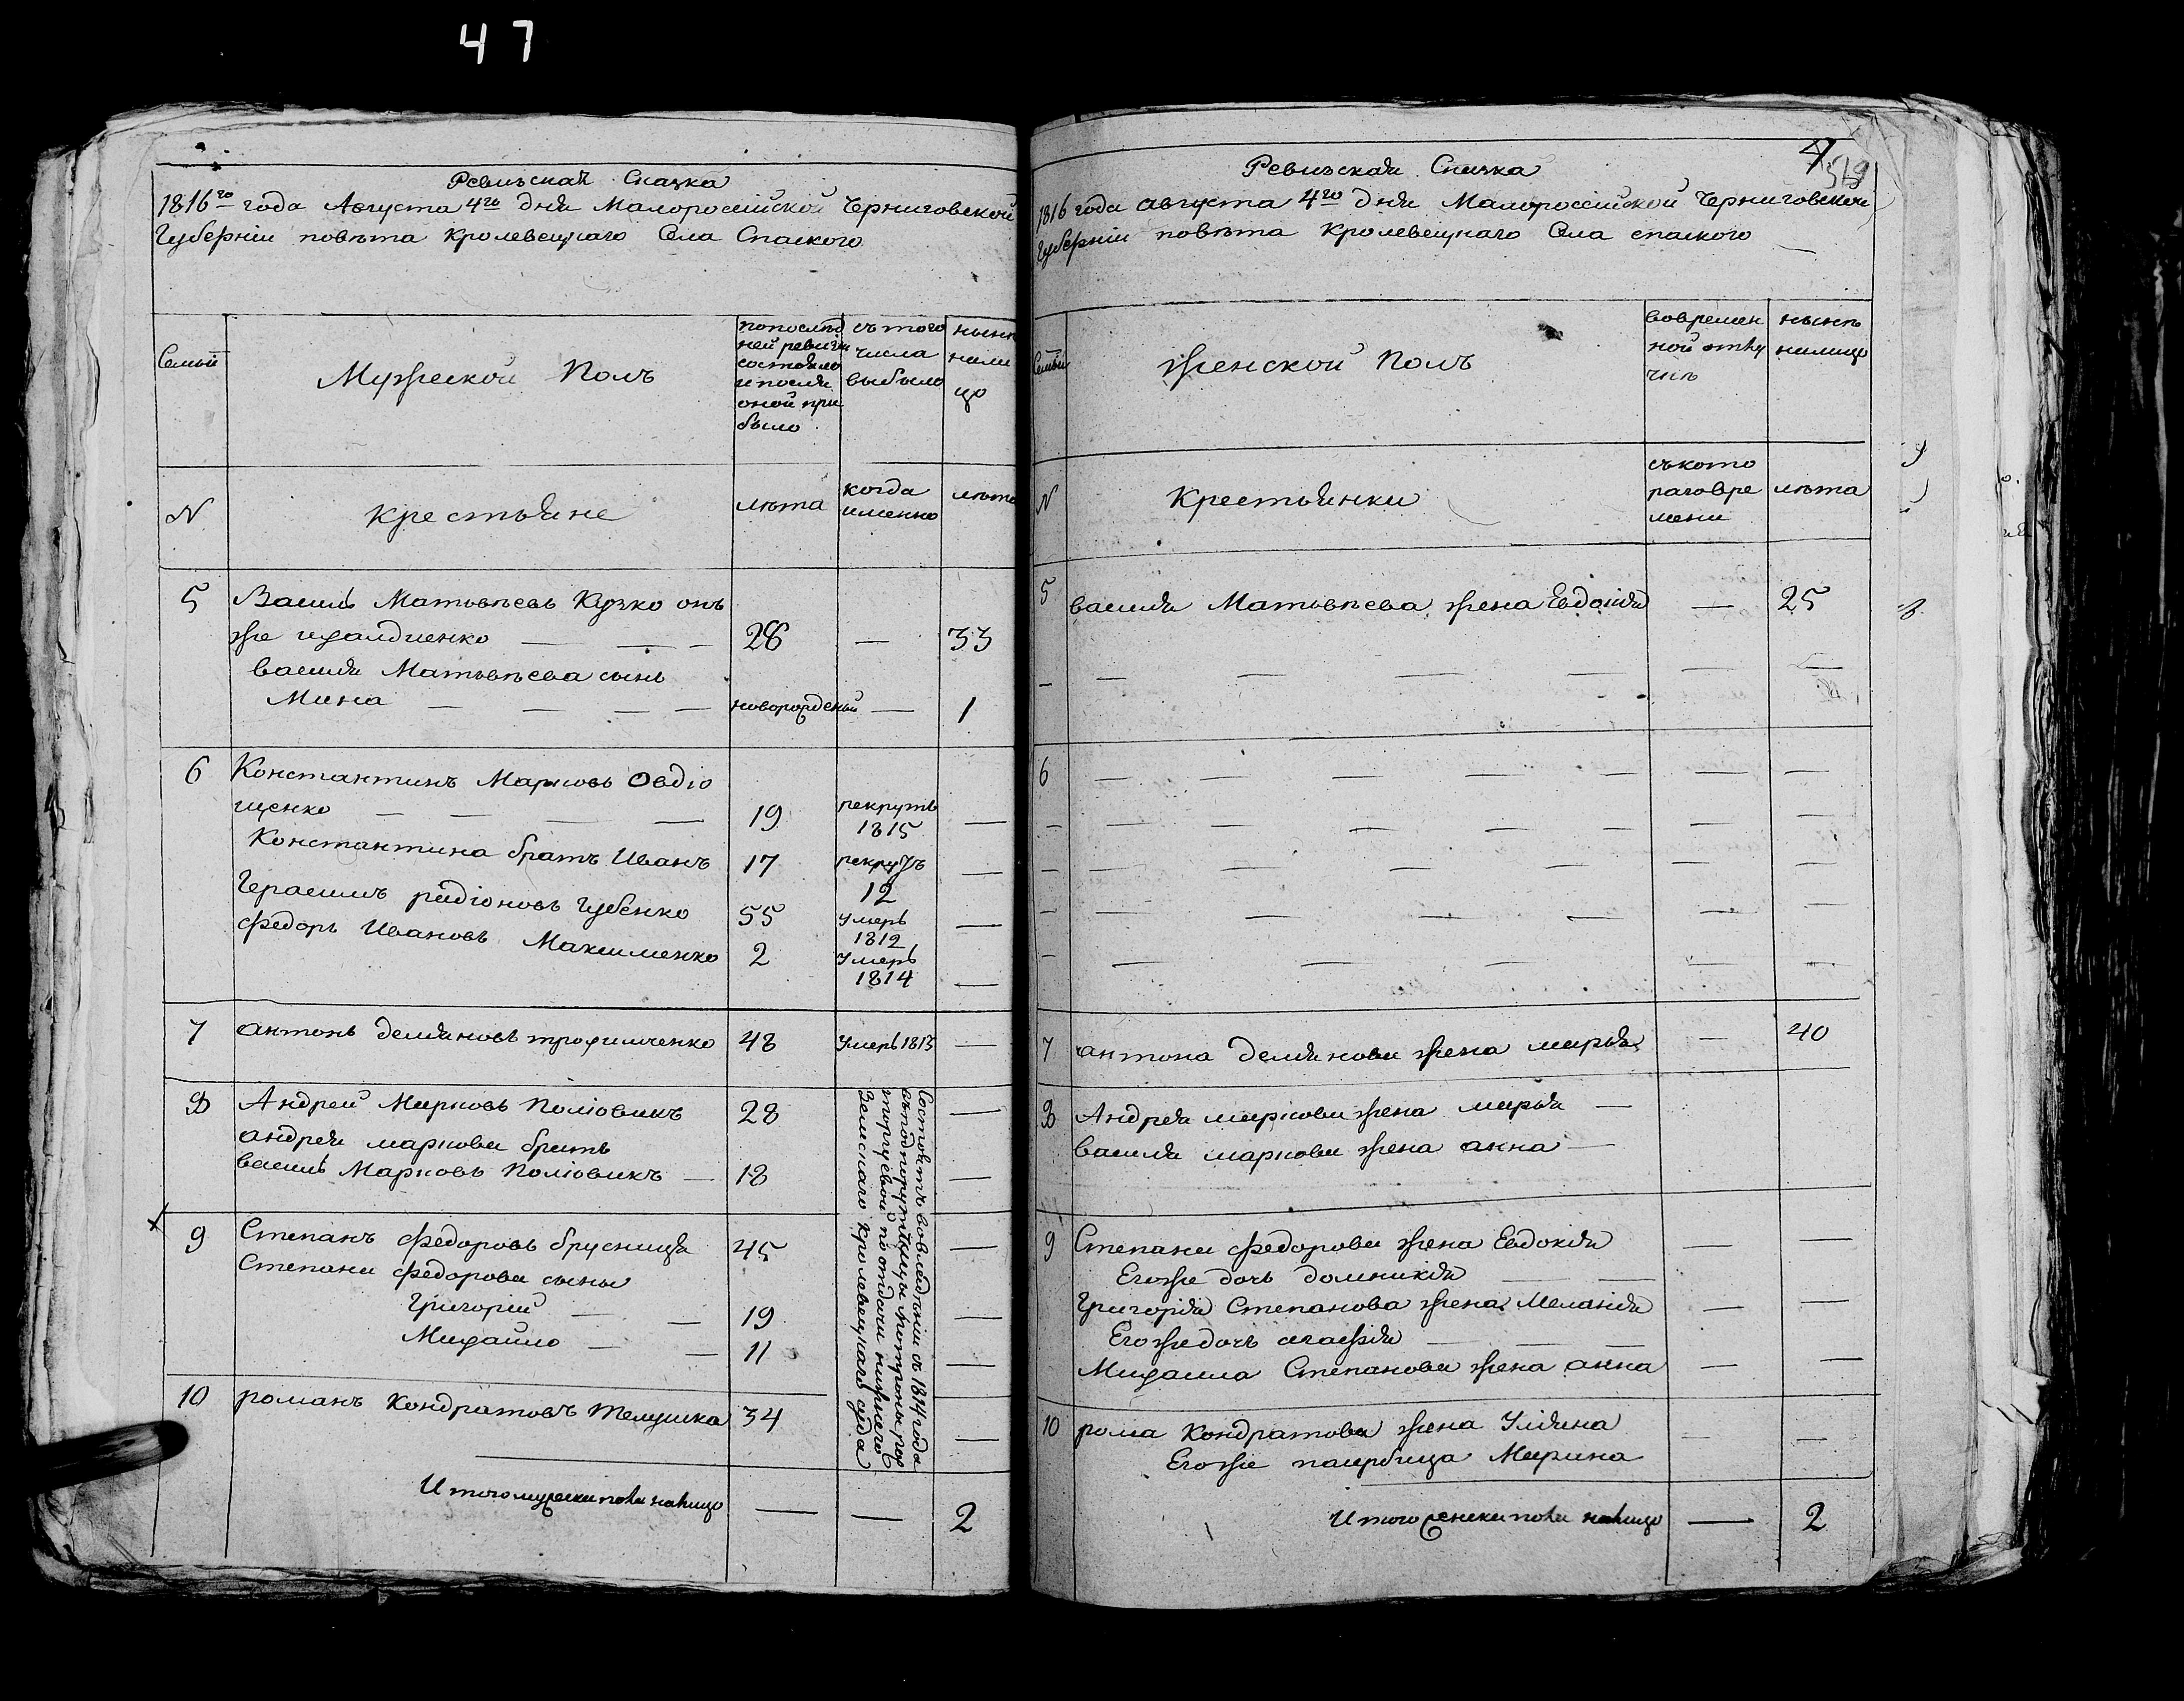 47
Ревизская Сказка
1816го года Августа 4го дня Малоросийской Черниговской
Губерніи повѣта Кролевецкаго Села Спаского
Семьи
Мужеской Полъ
попослѣд
ней ревизіи
состояло
ипосля
оной при
было
съ того
числа
выбыло
нынѣ
нали
цо
N
Крестьяне
лѣта
когда
именно
лѣта
5 Василь Матвѣевъ Кузко онъ
же
28 — 33
василя Матвѣева сынъ
Мина — — — — новорожденый — 1
6 Константинъ Марковъ Овдіо
щенко — — — — 19 рекрутъ 1815 —
Константина братъ Иванъ 17 рекрутъ 12 —
Герасимъ радіоновъ Губенко 55 умеръ 1812 —
Федоръ Ивановъ Максименко 2 умеръ 1814 —
7 антонъ демяновъ трофимченко 48 умеръ 1813 —
8 Андрей Марковъ Поліовикъ 28 —
андрея маркова братъ
василь Марковъ Поліовикъ — 18 —
9 Степанъ Федоровъ брусница 45 —
Степана федорова сыны
Григорій — — 19 —
Михайло — — 11 —
10 романъ Кондратовъ Телушка 34 —
Состоятъ вовладѣніи съ 1814 года
поотдачи нижнего
Земскаго Кролевецкаго суда
Итого мужеска пола налицо — — 2
4
519
Ревизская Сказка
1816 года августа 4го дня Малоросійской Черниговской
Губерніи повѣта Кролевецкаго Села спаского
Семьи
Женской Полъ
вовремен
ной отлу
чкѣ
нынѣ
налицо
N
Крестьянки
съкото
раговре
мени
лѣта
5 василя Матвѣева жена Евдокія — 25
— — — — — — —
6 — — — — — — —
— — — — — — — —
— — — — — — —
— — — — — — —
— — — — — —
7 антона демянова жена марья — 40
8 Андрея маркова жена марья —
василя маркова жена анна —
9 Степана федорова жена Евдокія — —
Егоже дочь домникія — —
Григорія Степанова жена Меланія — —
Егоже дочь агафія — —
Михаила Степанова жена анна — —
10 рома Кондратова жена Уляна — —
Егоже падчерица Марина
Итого женска пола налицо — 2